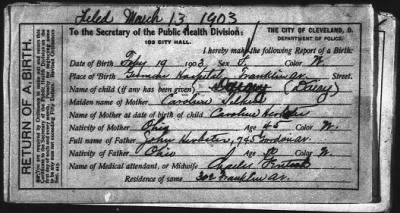 Filed March 13 1903
To the Secretary of the Public Health Division:
103 CITY HALL.
THE CITY OF CLEVELAND, O.
DEPARTMENT OF POLICE.
I hereby make the following Report of a Birth:
Date of Birth Feby 19 1903 Sex F. Color W.
Place of Birth German Hospital, Franklin Av. Street.
Name of child (if any has been given) (Daisy)
Maiden name of Mother Caroline
Name of Mother at date of birth of child Caroline Herbster
Nativity of Mother Ohio Age 45 Color W.
Full name of Father John Herbster, 745 Gordon Av.
Nativity of Father Ohio Age 50 Color W.
Name of Medical attendant, or Midwife
Residence of same 302 Franklin Av.
RETURN OF A BIRTH.